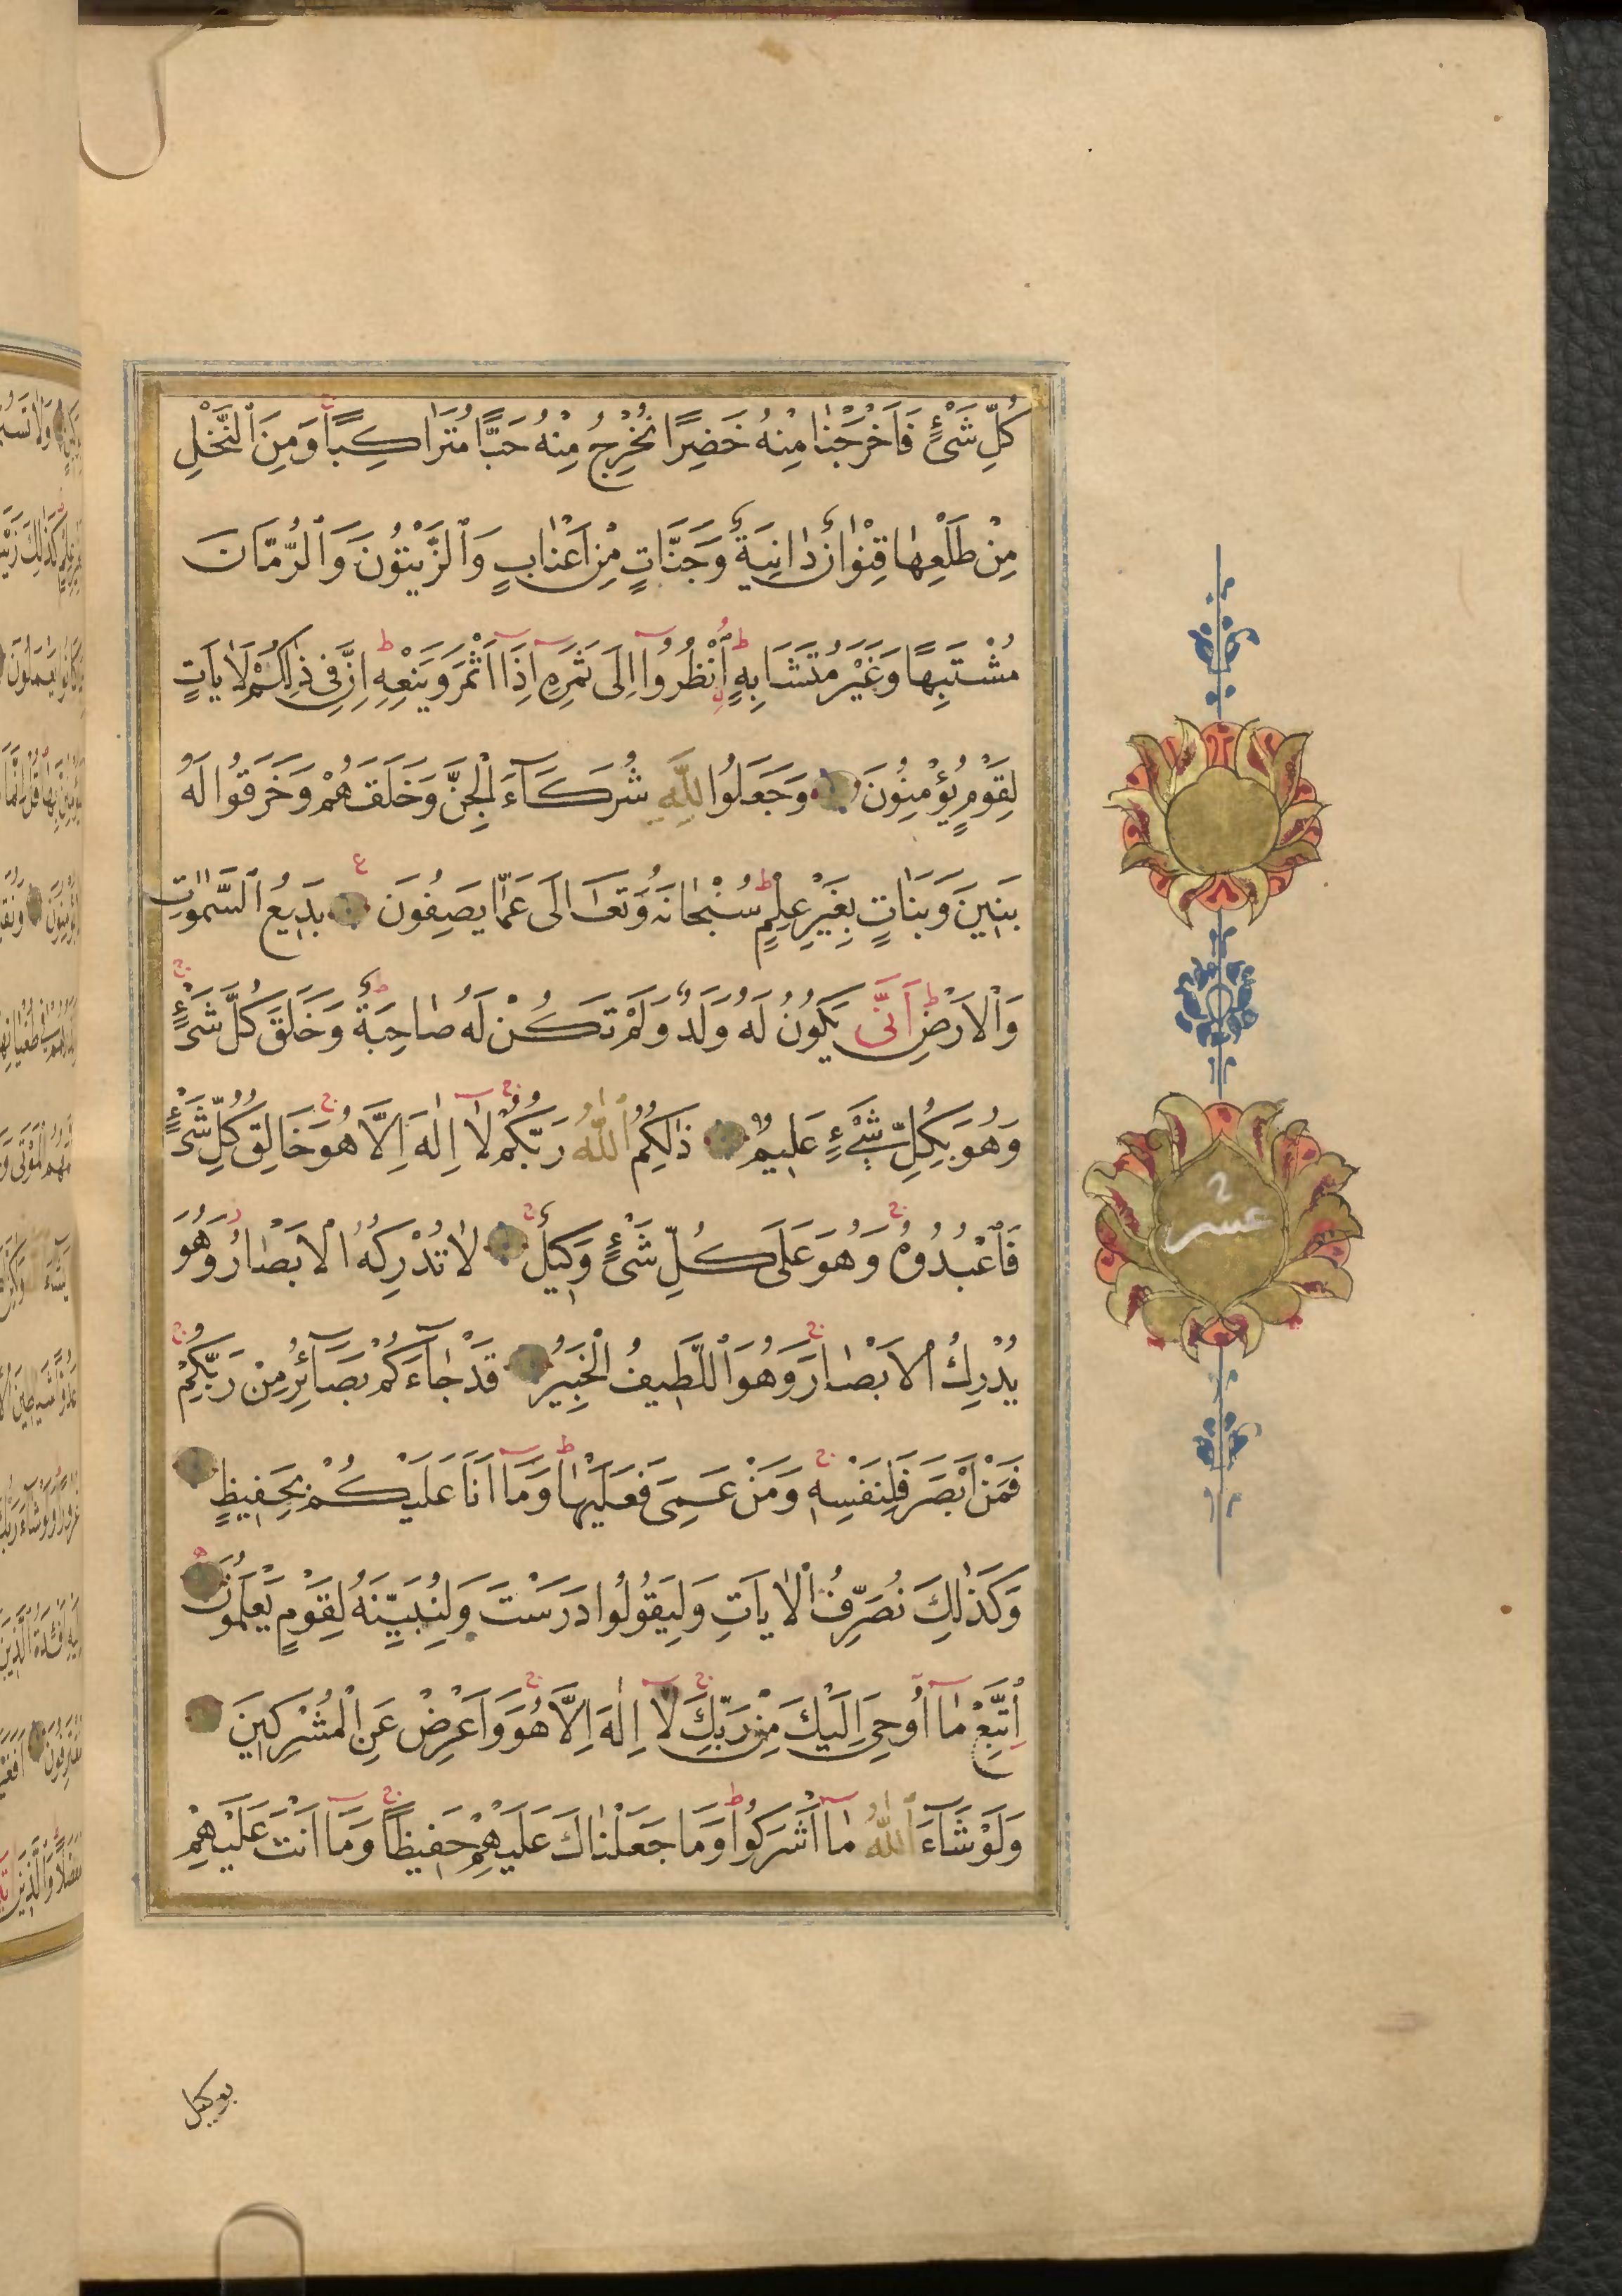 كُلِّ شَیْءٍ فَاَخْرَجْنٰا مِنْهُ خَضِرًا نُخْرِجُ مِنْهُ حَبًّا مُتَرٰاكِبًا وَمِنَ ٱلنَّخْلِ
مِنْ طَلْعِهٰا قِنْوٰانٌ دٰانِيَةٌ وَجَنَّاتٍ مِنْ اَعْنٰابٍ وَٱلزَّيْتُونَ وَٱلرُّمَّانَ
مُشْتَبِهًا وَغَيْرَ مُتَشَابِهٍ ٱُنْظُرُوٓا اِلَى ثَمَرِهِٓ اِذَٓا اَثْمَرَ وَيَنْعِهِ اِنَّ فِى ذٰلِكُمْ لَاٰيَاتٍ
لِقَوْمٍ يُؤْمِنُونَ وَجَعَلُوا لِلَّهِ شُرَكَآءَ الْجِنَّ وَخَلَقَهُمْ وَخَرَقُوا لَهُ
بَنِينَ وَبَنٰاتٍ بِغَيْرِ عِلْمٍ سُبْحٰانَهُ وَتَعَالَى عَمَّا يَصِفُونَ بَدِيعُ ٱلسَّمٰوٰتِ
وَٱلْاَرْضِ اَنَّى يَكُونُ لَهُ وَلَدٌ وَلَمْ تَكُنْ لَهُ صٰاحِبَةٌ وَخَلَقَ كُلَّ شَیْءٍ
وَهُوَ بِكُلِّ شَیْءٍ عَلِيمٌ ذٰلِكُمُ ٱللّٰهُ رَبُّكُمْ لَآ اِلٰهَ اِلَّا هُوَ خَالِقُ كُلِّ شَیْءٍ
فَٱعْبُدُوهُ وَهُوَ عَلَى كُلِّ شَیْءٍ وَكِيلٌ لٰا تُدْرِكُهُ الْاَبْصٰارُ وَهُوَ
يُدْرِكُ الْاَبْصٰارَ وَهُوَ ٱللَّطِيفُ الْخَبِيرُ قَدْ جٰآءَكُمْ بَصَآئِرُ مِنْ رَبِّكُمْ
فَمَنْ اَبْصَرَ فَلِنَفْسِهِ وَمَنْ عَمِىَ فَعَلَيْهٰا وَمَآ اَنَا عَلَيْكُمْ بِحَفِيظٍ
وَكَذٰلِكَ نُصَرِّفُ الْاٰيَاتِ وَلِيَقُولُوا دَرَسْتَ وَلِنُبَيِّنَهُ لِقَوْمٍ يَعْلَمُونَ
اِتَّبِعْ مٰآ اُوحِىَ اِلَيْكَ مِنْ رَبِّكَ لَآ اِلٰهَ اِلَّا هُوَ وَاَعْرِضْ عَنِ الْمُشْرِكِينَ
وَلَوْ شَآءَ ٱللّٰهُ مٰآ اَشْرَكُوا وَمَا جَعَلْنٰاكَ عَلَيْهِمْ حَفِيظًا وَمَآ اَنْتَ عَلَيْهِمْ
بوكيل
عشر